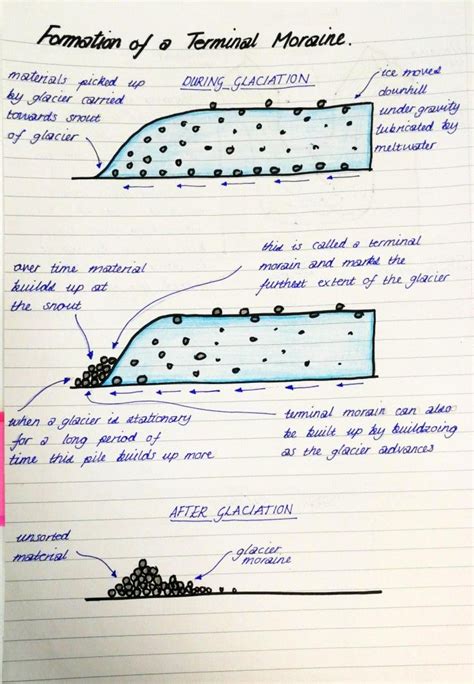 Formation of a Terminal Moraine.
materials picked up
by glacier carried
towards snout
of glacier
DURING GLACIATION
ice moves
downhill
under gravity
lubricated by
meltwater
over time material
builds up at
the snout
this is called a terminal
morain and marks the
furthest extent of the glacier
when a glacier is stationary
for a long period of
time this pile builds up more
terminal morain can also
be built up by buildzoing
as the glacier advances
AFTER GLACIATION
unsorted
material
glacier
moraine